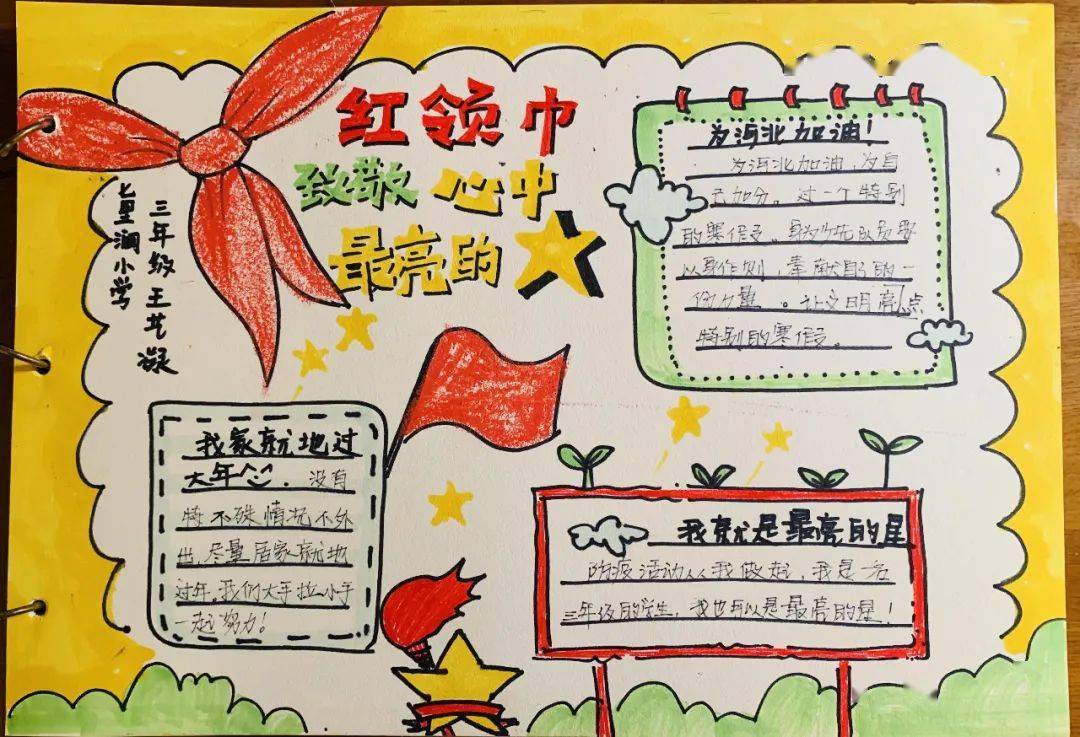 红领巾
致敬心中
最亮的
七里涧小学
三年级王艺凝
为河北加油！
为河北加油，为自
己加分。过一个特别
的寒假。身为少先队员要
以身作则，奉献自己的一
份力量。让文明亮点
特别的寒假。
我家就地过
大年。没有
特殊情况不外
出，尽量居家就地
过年，我们大手拉小手
一起努力！
我就是最亮的星
防疫活动从我做起，我是一名
三年级的学生，我也可以是最亮的星！